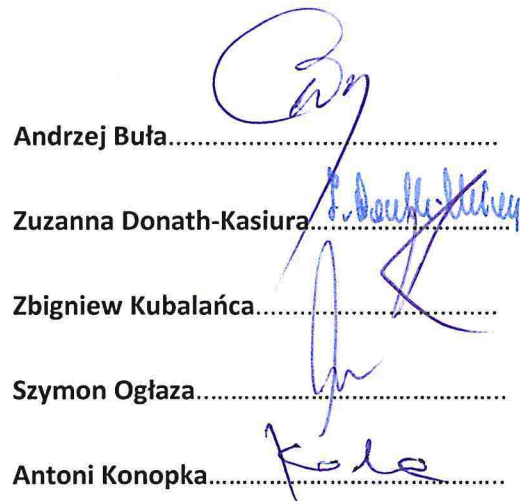 Andrzej Buła.............................................
Zuzanna Donath-Kasiura...........................
Zbigniew Kubalańca.................................
Szymon Ogłaza..........................................
Antoni Konopka........................................